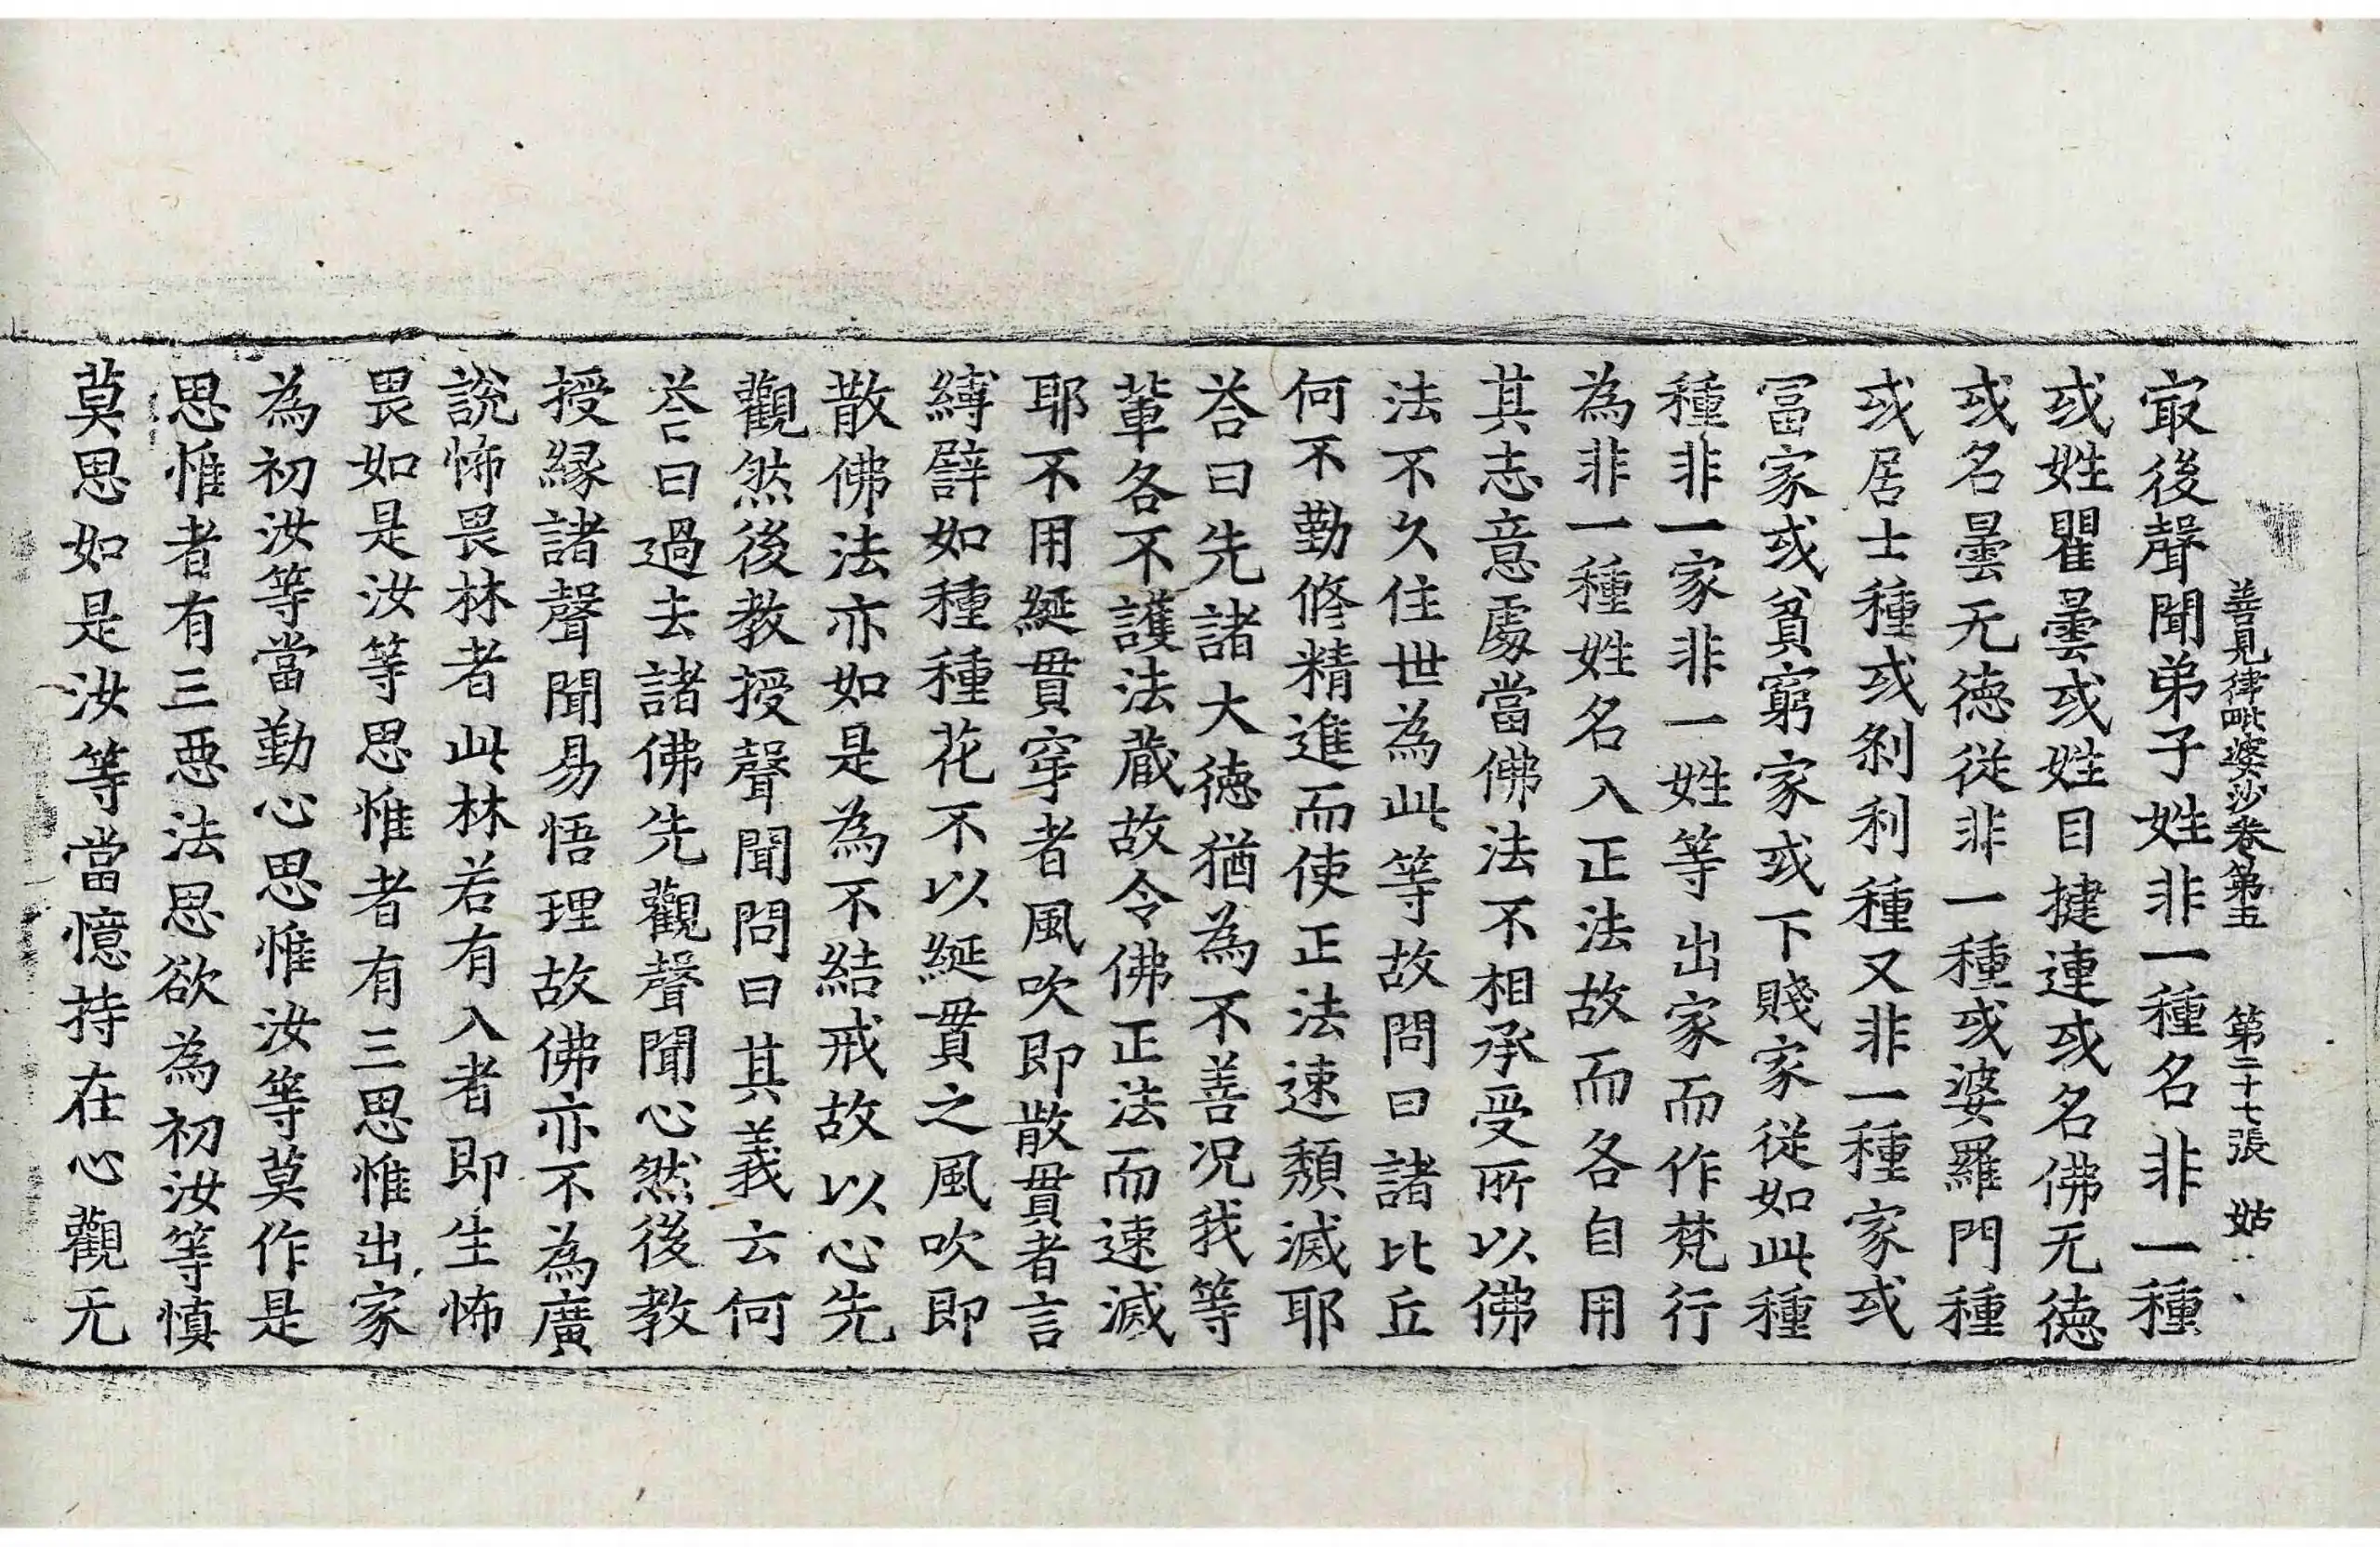 善見律毗婆沙卷第五　第二十七張　姑
㝡後聲聞弟子姓非一種名非一種
或姓瞿曇或姓目揵連或名佛无徳
或名曇无徳従非一種或婆羅門種
或居士種或剎利種又非一種家或
冨家或貧窮家或下賤家従如此種
種非一家非一姓等出家而作梵行
為非一種姓名入正法故而各自用
其志意䖏當佛法不相承受所以佛
法不久住世為此等故問曰諸比丘
何不勤修精進而使正法速頽滅耶
荅曰先諸大徳猶為不善况我等
輩各不護法蔵故令佛正法而速滅
耶不用綖貫穿者風吹即散貫者言
縛譬如種種花不以綖貫之風吹即
散佛法亦如是為不結戒故以心先
觀然後教授聲聞問曰其義云何
荅曰過去諸佛先觀聲聞心然後教
授縁諸聲聞易悟理故佛亦不為廣
說怖畏林者此林若有入者即生怖
畏如是汝等思惟者有三思惟出家
為初汝等當勤心思惟汝等莫作是
思惟者有三惡法思欲為初汝等慎
莫思如是汝等當憶持在心觀无